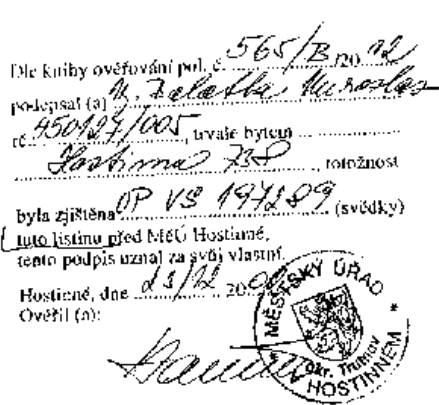 Dle knihy ověřování pol. č. 565/B /20 02
podepsal (a) Miroslav
rč. 450127/005, trvale bytem ..........
Hostinné 738, totožnost
byla zjištěna OP VS 197289 (svědky)
tuto listinu před MěÚ Hostinné,
tento podpis uznal za svůj vlastní.
Hostinné, dne 23/12 20
Ověřil (a):
MĚSTSKÝ ÚŘAD
okr. Trutnov
* V HOSTINNÉM *